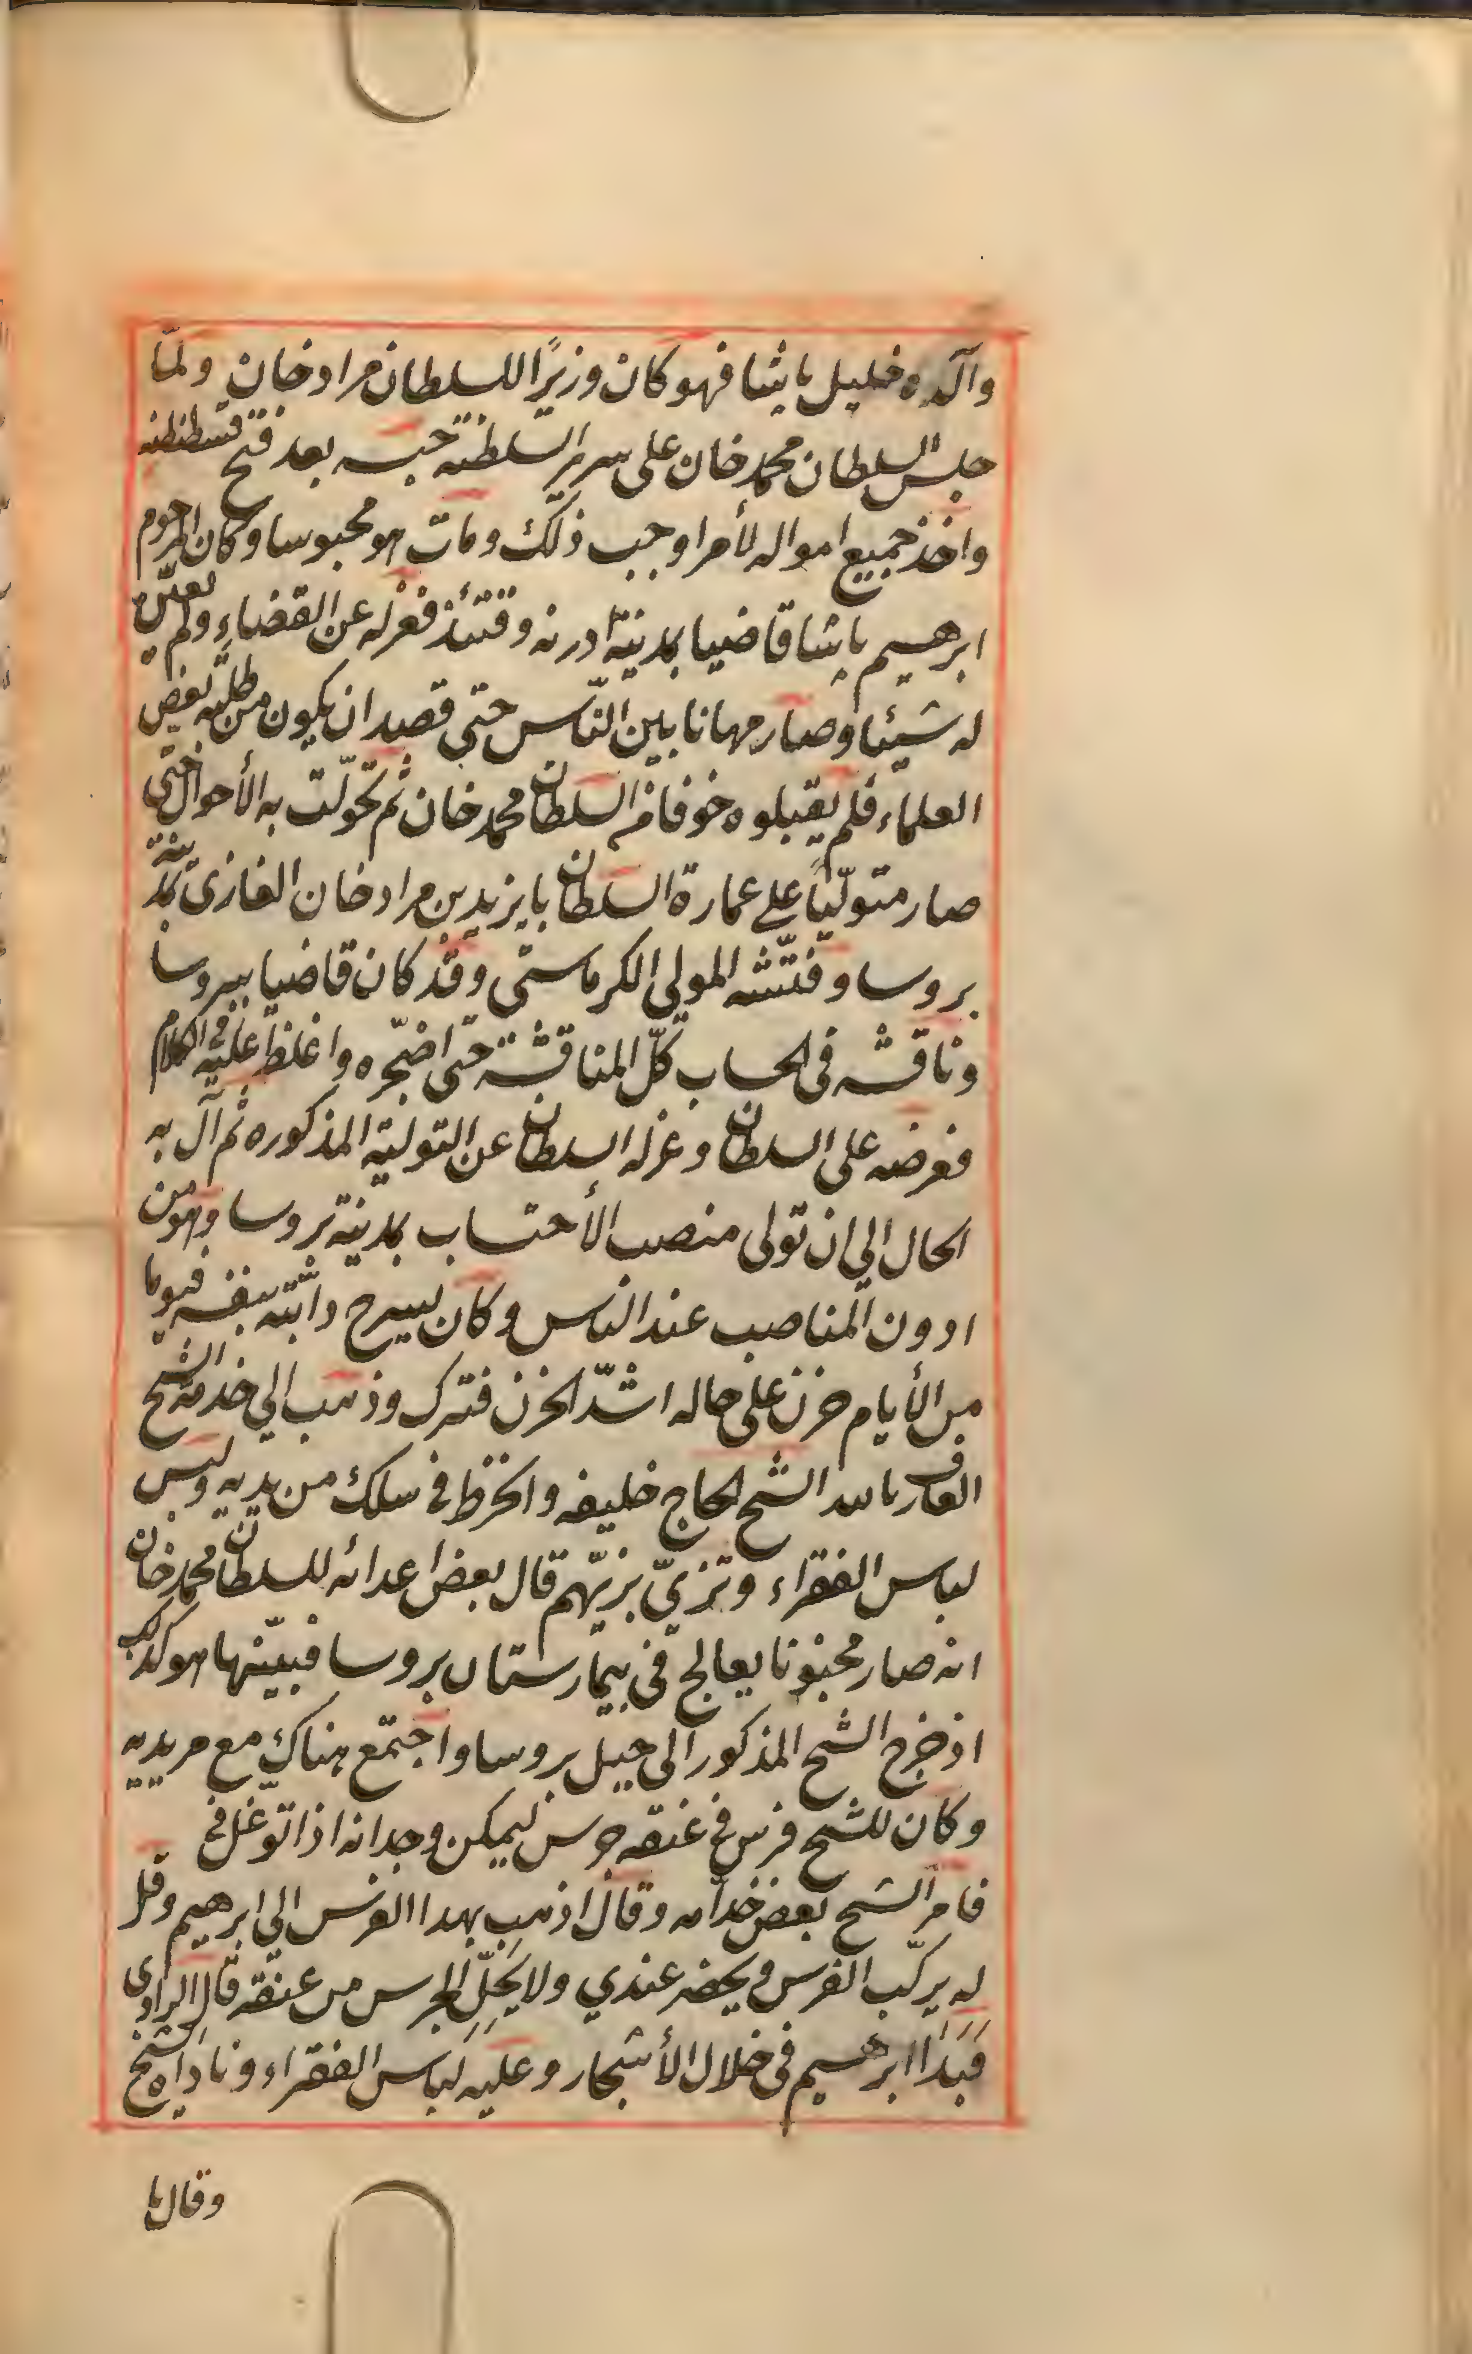 والده خليل پاشا فهو كان وزيرًا للسلطان مراد خان ولمّا
جلس السلطان محمد خان على سرير السلطنة حبسه بعد فتح قسطنطنيه
واخذ جميع امواله لأمر اوجب ذلك ومات هو محبوسا وكان المرحوم
ابرهيم پاشا قاضيا بمدينة ادرنه وقتئذ فعزله عن القضاء ولم يعيّن
له شيئا وصار مهانا بين النّاس حتى قصد ان يكون من طلبه بعض
العلماء فلم يقبلوه خوفا من السلطان محمد خان ثم تحوّلت به الأحوال حتى
صار متوليًا على عمارة السلطان بايزيد بن مراد خان الغازى بمدينة
بروسا وفتّشه المولى الكرماستى وقد كان قاضيا ببروسا
وناقشه فى الحساب كلّ المناقشة حتى اضجّره واغلظ عليه فى الكلام
فعرضه على السلطان وعزله السلطان عن التولية المذكوره ثم آل به
الحال الى ان تولى منصب الأحتساب بمدينة بروسا وهو من
ادون المناصب عند الناس وكان يسرح دابّته بنفسه فيوما
من الأيام حزن على حاله اشدّ الحزن فترك وذهب الى خدمة الشيخ
العارف بالله الشيخ الحاج خليفه وانخرط فى سلك من يديه ولبس
لباس الفقراء وتزيّ بزيّهم قال بعض اعدائه للسلطان محمد خان
انه صار مجنونا يعالج فى بيمارستان بروسا فبيّنها هو كذلك
اذ خرج الشيخ المذكور الى جبل بروسا واجتمع هناك مع مريديه
وكان للشيخ فرس فى عنقه جرس ليمكن وجدانه اذا توغل فى
فامر الشيخ بعض خدامه وقال اذهب بهذا الفرس الى ابرهيم وقل
له يركب الفرس ويحضر عندي ولا يحلّ الجرس من عنقه قال الراوى
فبدا ابرهيم فى خلال الأشجار وعليه لباس الفقراء وناداه الشيخ
وقال يا